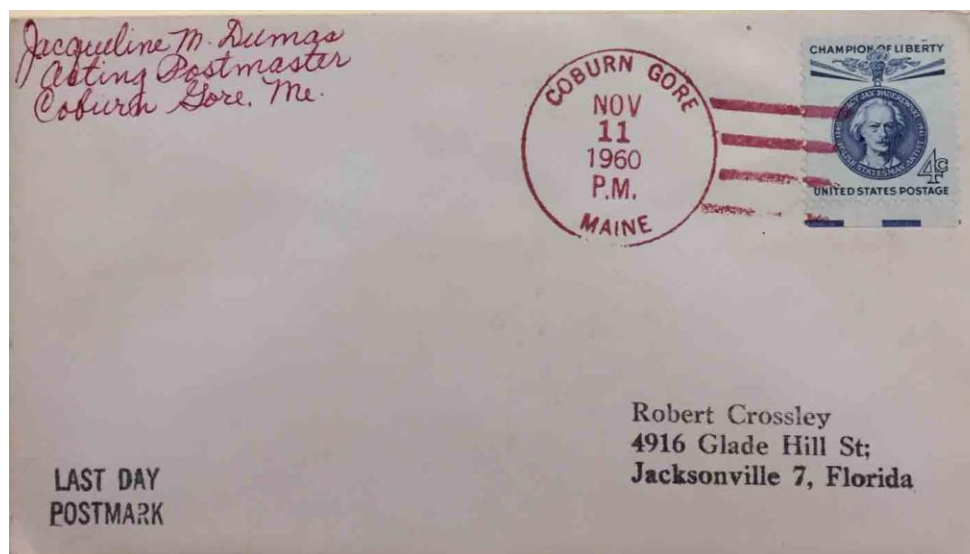 Jacqueline M. Dumas
Acting Postmaster
Coburn Gore, Me.
COBURN GORE
NOV
11
1960
P.M.
MAINE
CHAMPION OF LIBERTY
IGNACY JAN PADEREWSKI
POLISH STATESMAN ARTIST
4¢
UNITED STATES POSTAGE
Robert Crossley
4916 Glade Hill St;
Jacksonville 7, Florida
LAST DAY
POSTMARK